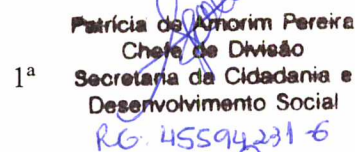 Patrícia de Amorim Pereira
Chefe de Divisão
1ª Secretaria da Cidadania e
Desenvolvimento Social
RG. 45594231-6